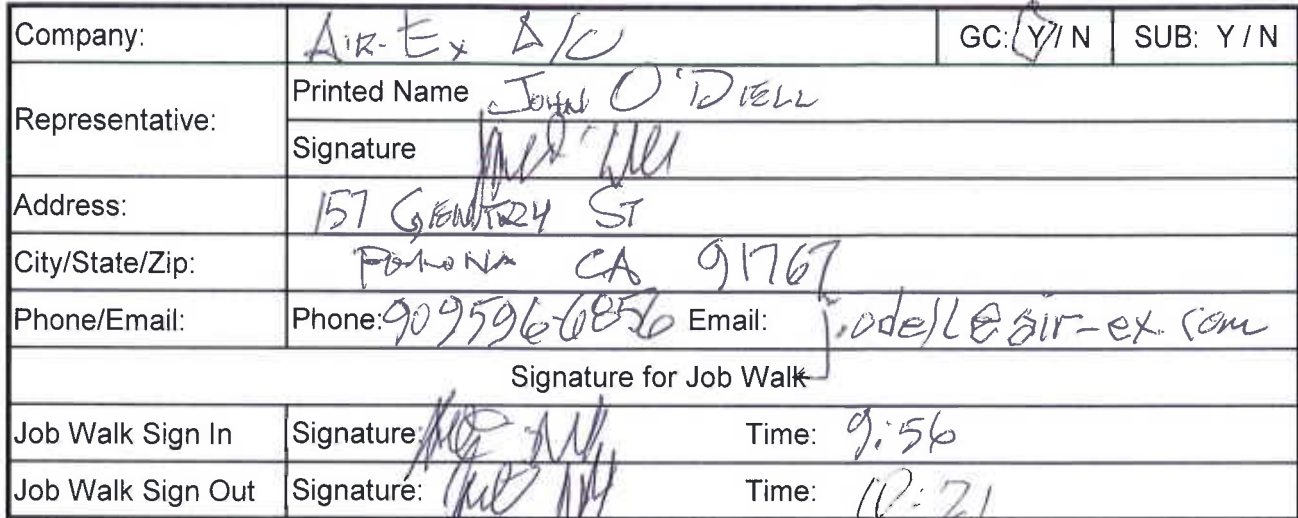 Company: AIR-Ex A/C GC: Y / N SUB: Y / N
Representative: Printed Name JOHN O'DIELL
Signature
Address: 157 GENTRY ST
City/State/Zip: POMONA CA 91767
Phone/Email: Phone: 909596-6856 Email: j.odell@air-ex.com
Signature for Job Walk
Job Walk Sign In Signature: Time: 9:56
Job Walk Sign Out Signature: Time: 10:21